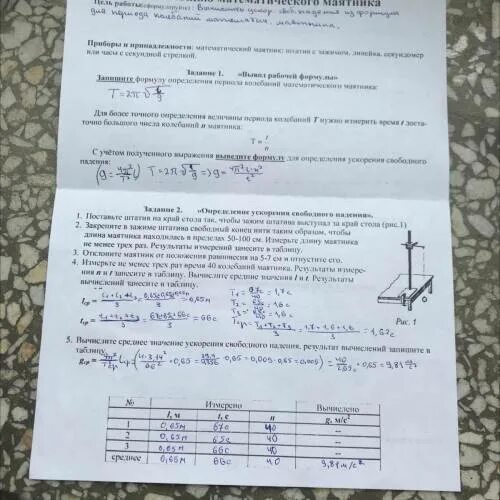 математического маятника
Цель работы(сформулируйте): Вычислить ускор. своб. падения из формулы
для периода колебаний математич. маятника.
Приборы и принадлежности: математический маятник: штатив с зажимом, линейка, секундомер
или часы с секундной стрелкой.
Задание 1. «Вывод рабочей формулы»
Запишите формулу определения периода колебаний математического маятника:
T=2π√(l/g)
Для более точного определения величины периода колебаний T нужно измерить время t доста-
точно большого числа колебаний n маятника:
T = t/n
С учётом полученного выражения выведите формулу для определения ускорения свободного
падения:
T=2π√(l/g) => g=
Задание 2. «Определение ускорения свободного падения».
1. Поставьте штатив на край стола так, чтобы зажим штатива выступал за край стола (рис.1)
2. Закрепите в зажиме штатива свободный конец нити таким образом, чтобы
длина маятника находилась в пределах 50-100 см. Измерьте длину маятника
не менее трех раз. Результаты измерений занесите в таблицу.
3. Отклоните маятник от положения равновесия на 5-7 см и отпустите его.
4. Измерьте не менее трех раз время 40 колебаний маятника. Результаты измере-
ния n и t занесите в таблицу. Вычислите средние значения l и t. Результаты
вычислений занесите в таблицу.
T₁= 67c/40 = 1,7c
T₂= 65c/40 = 1,6c
T₃= 66c/40 = 1,6c
= 0,65м
tср = (t₁+t₂+t₃)/3 = (67+65+66)/3 = 66c
Tср = (T₁+T₂+T₃)/3 = (1,7+1,6+1,6)/3 = 1,62c
Рис. 1
5. Вычислите среднее значение ускорения свободного падения, результат вычислений запишите в
таблицу.
· 0,65 = 9,81
№ Измерено Вычислено
l, м t, с n g, м/с²
1 0,65м 67с 40 --
2 0,65м 65с 40 --
3 0,65м 66с 40 --
среднее 66с 40 9,81м/с²